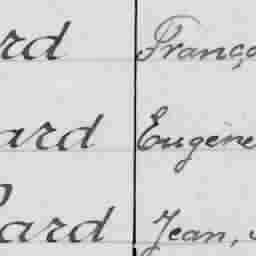 rd Franço
ard Eugène
ard Jean,